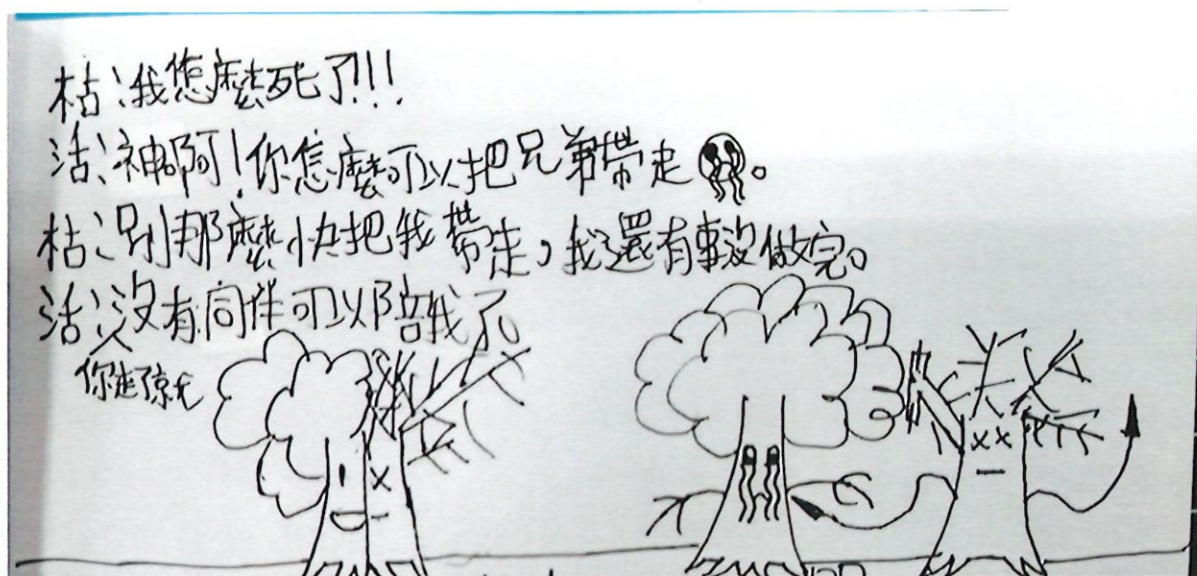 枯:我怎麼死了!!!
活:神啊!你怎麼可以把兄弟帶走。
枯:別那麼快把我帶走,我還有事沒做完。
活:沒有同伴可以陪我了
你走了